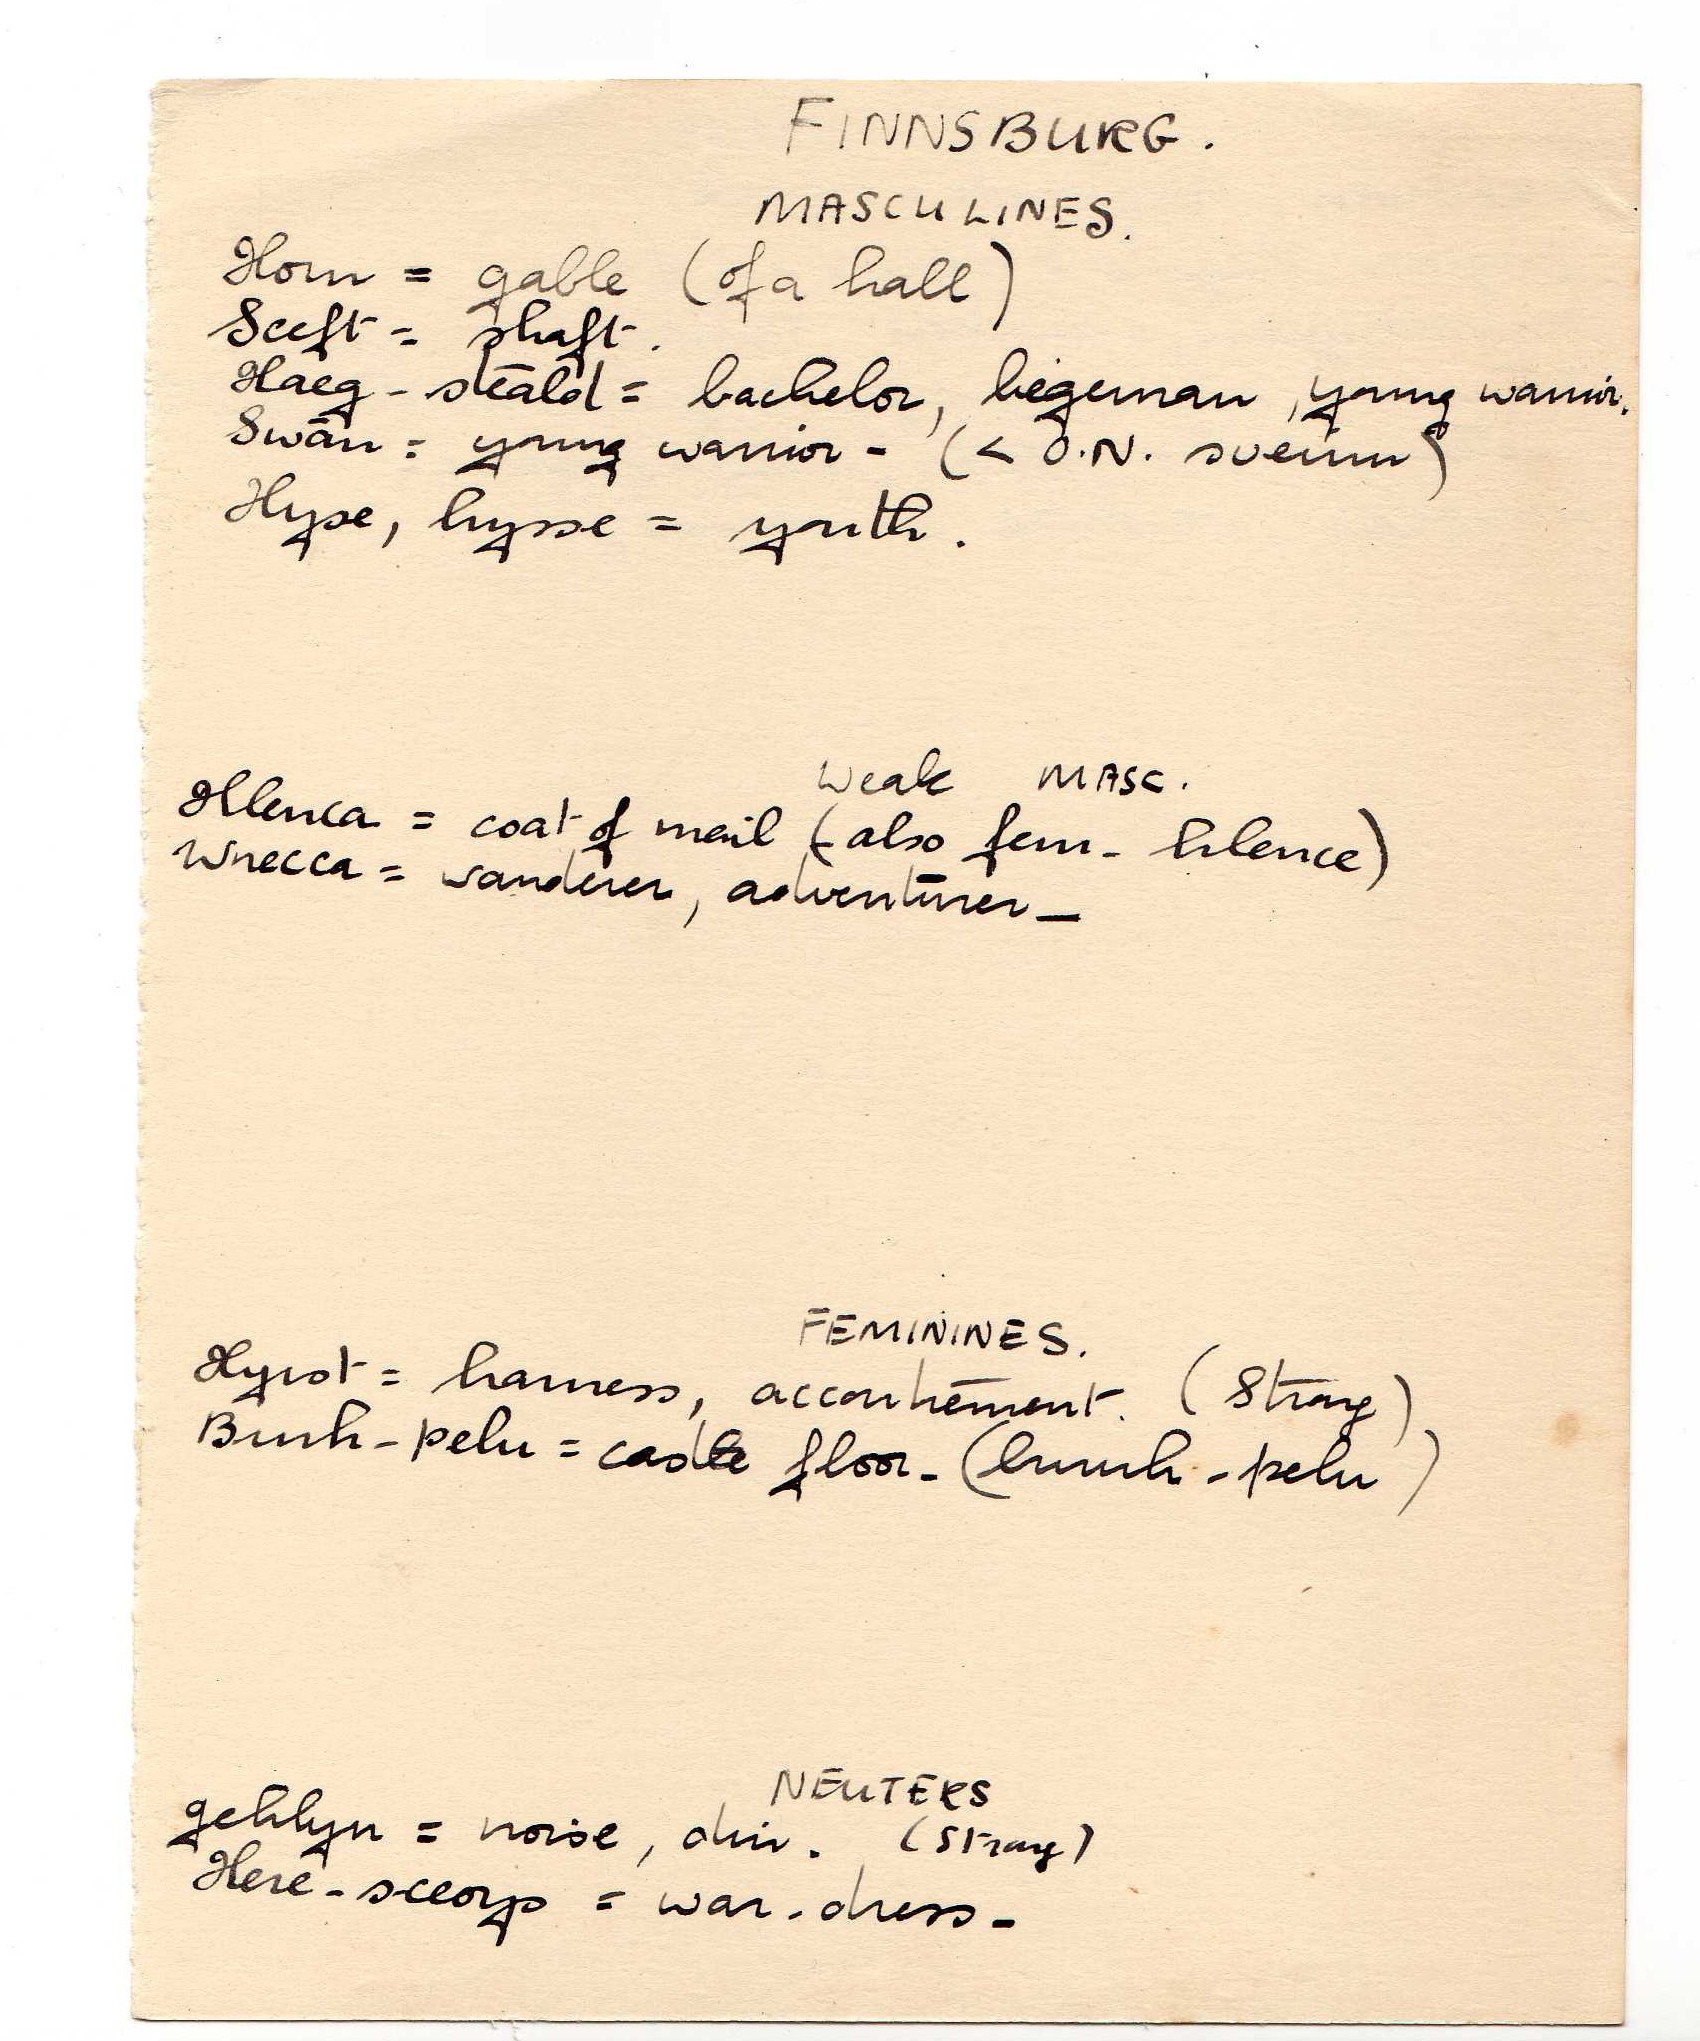 FINNSBURG.
MASCULINES.
Horn = gable (of a hall)
Sceft = shaft.
Haeg-steald = bachelor, liegeman, young warrior.
Swān = young warrior - (< O.N. sveinn)
Hyse, hysse = youth.
Weak MASC.
Hlenca = coat of mail (also fem - hlence)
Wrecca = wanderer, adventurer -
FEMININES.
Hyrst = harness, accoutrement. (Strong)
Burh-þelu = castle floor - (buruh-þelu)
NEUTERS
gehlyn = noise, din. (Strong)
Here-sceorp = war-dress -